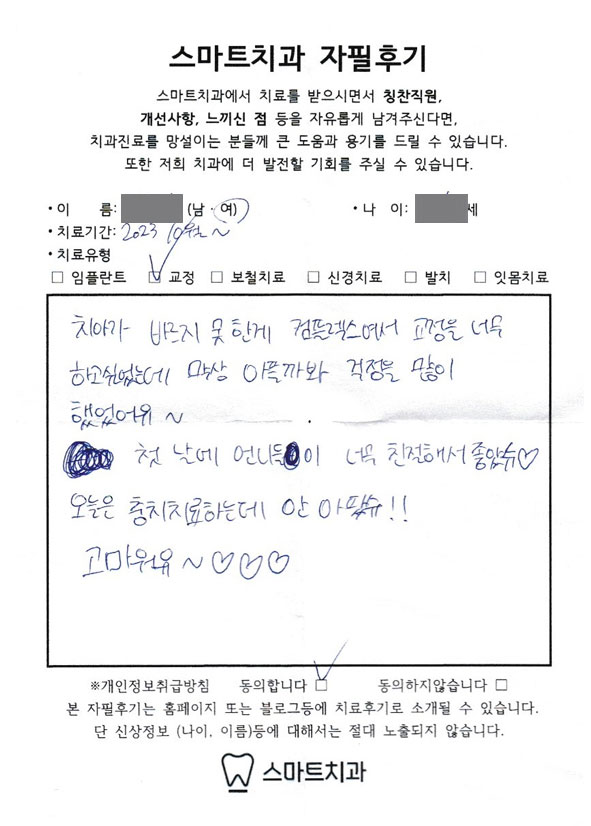 스마트치과 자필후기
스마트치과에서 치료를 받으시면서 칭찬직원,
개선사항, 느끼신 점 등을 자유롭게 남겨주신다면,
치과진료를 망설이는 분들께 큰 도움과 용기를 드릴 수 있습니다.
또한 저희 치과에 더 발전할 기회를 주실 수 있습니다.
• 이 름: (남 · 여) • 나 이: 세
• 치료기간: 2023 10월 ~
• 치료유형
□ 임플란트 □ 교정 □ 보철치료 □ 신경치료 □ 발치 □ 잇몸치료
치아가 바르지 못한게 컴플렉스여서 교정을 너무
하고싶었는데 막상 아플까봐 걱정을 많이
했었어유 ~
첫 날에 언니들이 너무 친절해서 좋았슈♡
오늘은 충치치료하는데 안 아팠슈!!
고마워유 ~ ♡♡♡
※개인정보취급방침 동의합니다 □ 동의하지않습니다 □
본 자필후기는 홈페이지 또는 블로그등에 치료후기로 소개될 수 있습니다.
단 신상정보 (나이, 이름)등에 대해서는 절대 노출되지 않습니다.
스마트치과